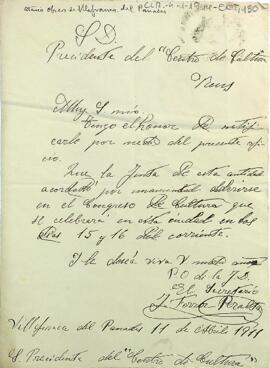 Ateneo Obrero de Vilafranca del Panadés
S. D.
Presidente del "Centro de Cultura
Reus
Muy S. mio:
Tengo el honor de notifi-
carle por medio del presente ofi-
cio.
Que la Junta de esta entidad
acordado por unanimidad adherirse
en el Congreso de Cultura que
se celebrará en esta ciudad en los
días 15 y 16 del corriente.
Y le desea viva V muchos años
P.O de la J.D.
El Secretario
J. Torres Peralta
Villafranca del Panades 11 de Abril 1911
S. Presidente del "Centro de Cultura"